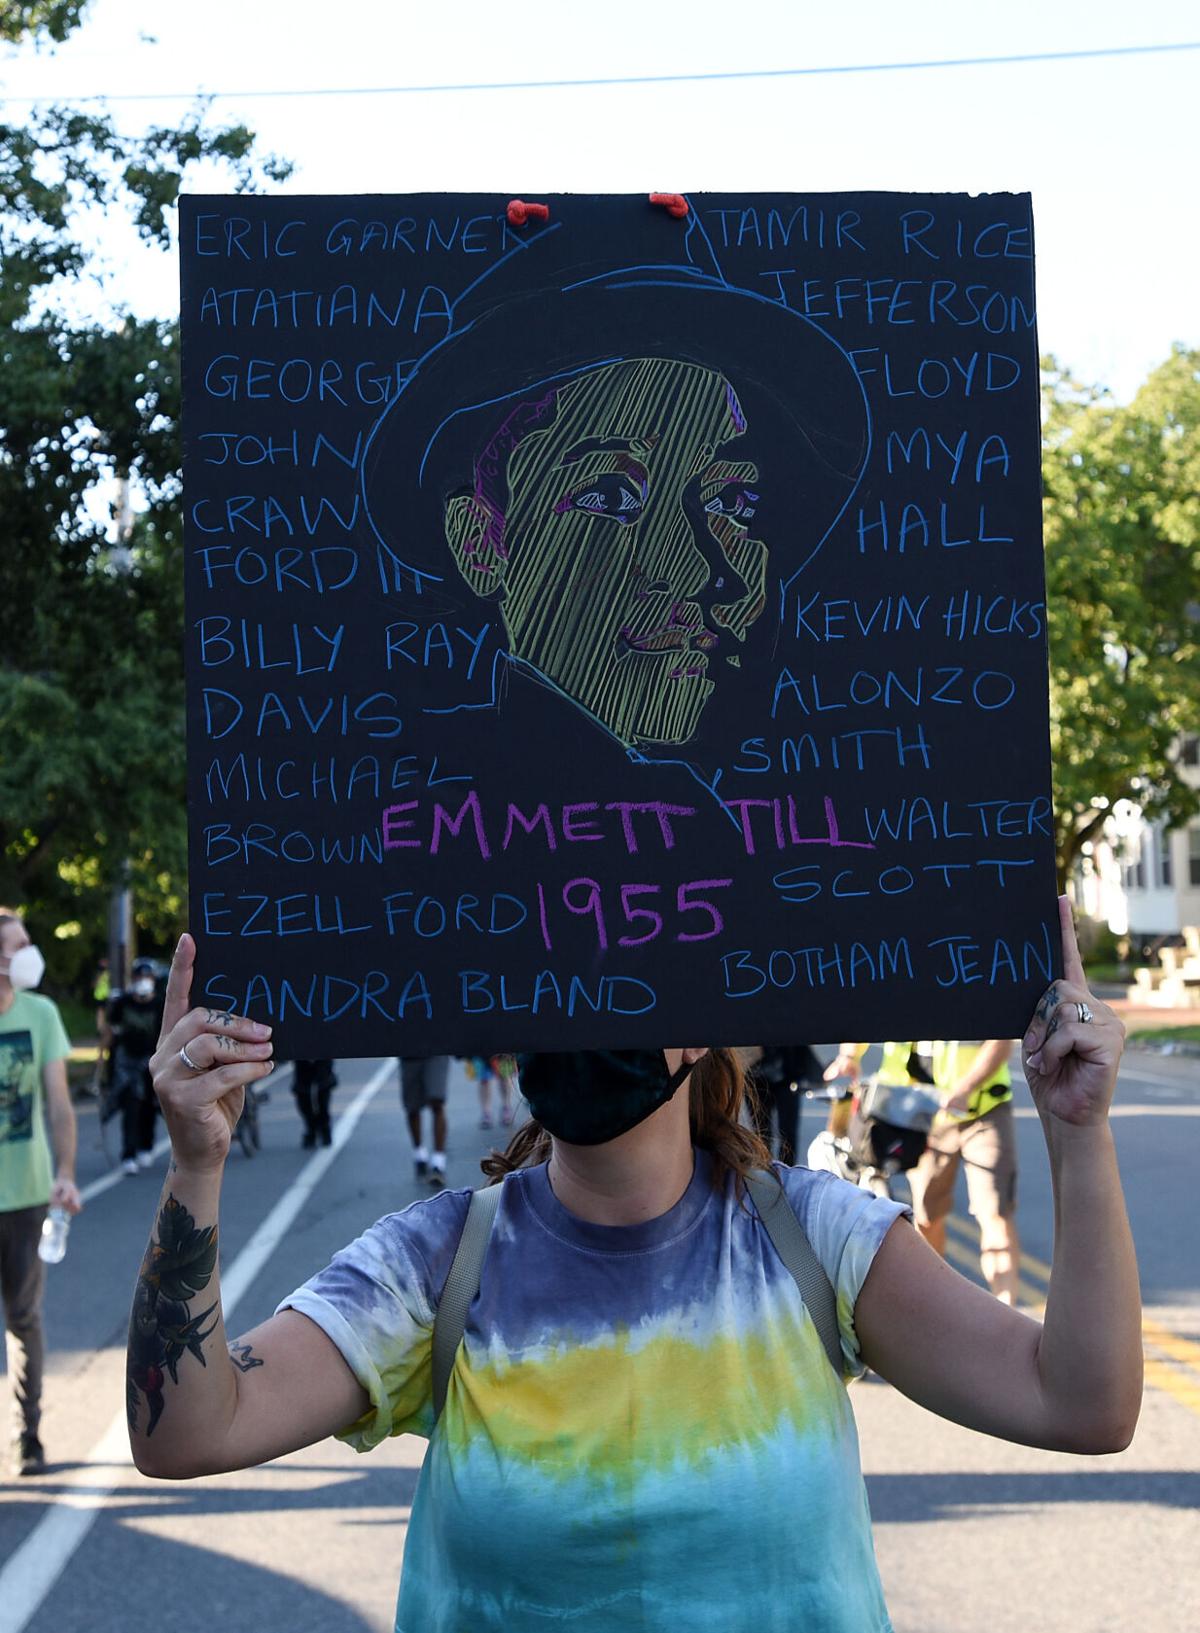 ERIC GARNER
TAMIR RICE
ATATIANA
JEFFERSON
GEORGE
FLOYD
JOHN
CRAW
FORD III
MYA
HALL
BILLY RAY
DAVIS
KEVIN HICKS
ALONZO
SMITH
MICHAEL
BROWN
EMMETT TILL
1955
WALTER
SCOTT
EZELL FORD
SANDRA BLAND
BOTHAM JEAN